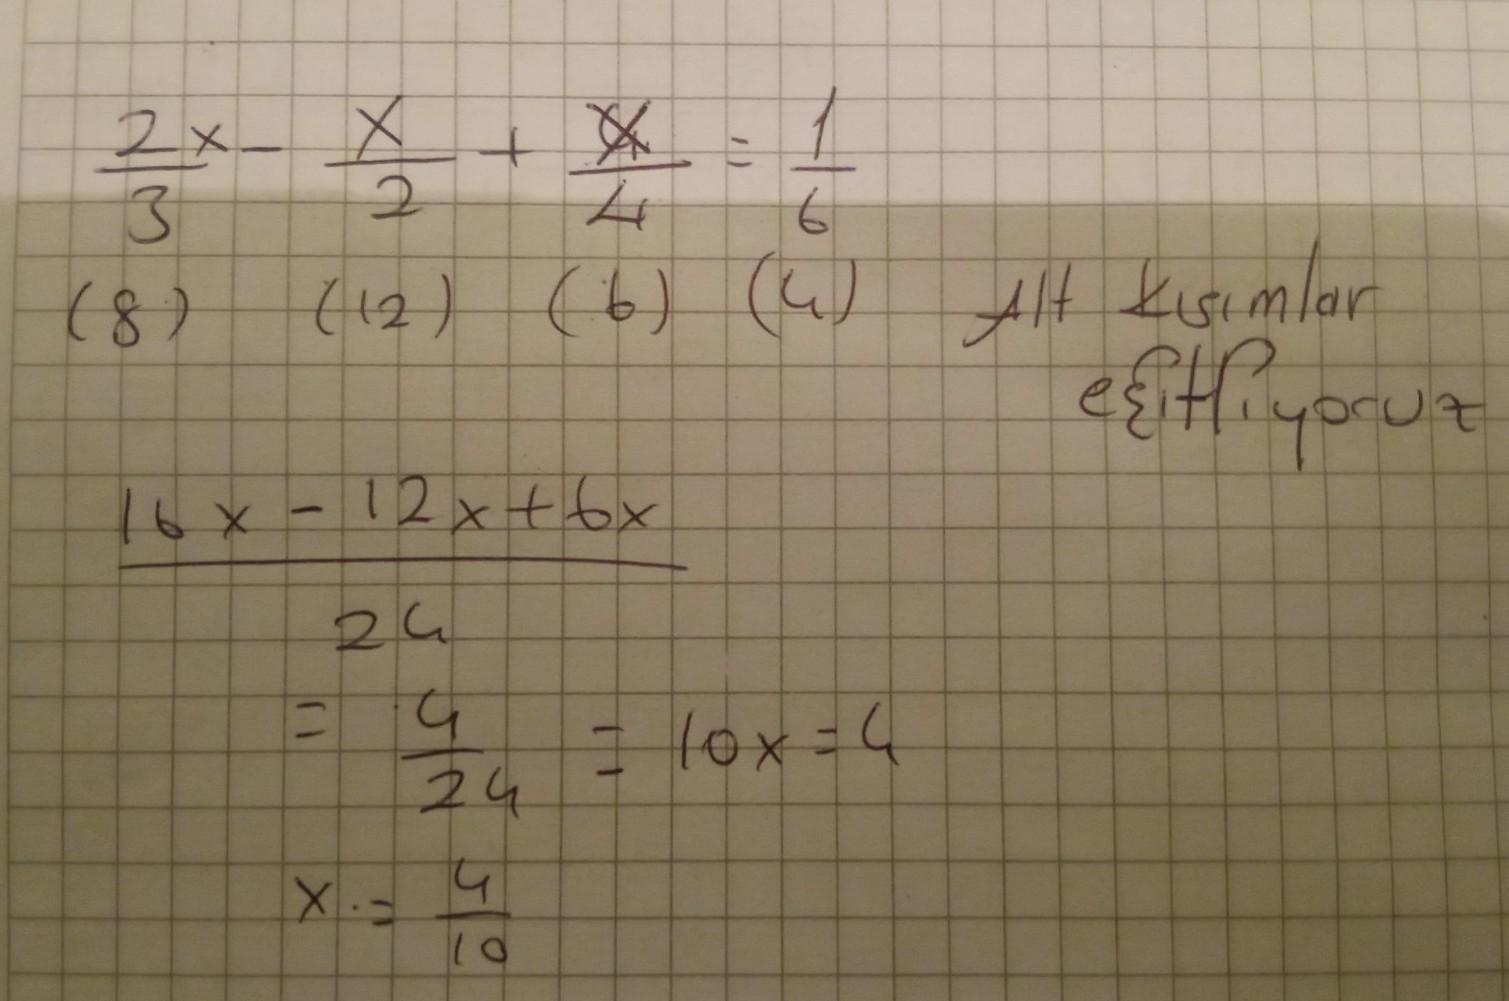 2x/3 - x/2 + x/4 = 1/6
(8) (12) (6) (4) Alt kısımlar
eşitliyoruz
16x - 12x + 6x
24
= 4/24 = 10x = 4
x = 4/10